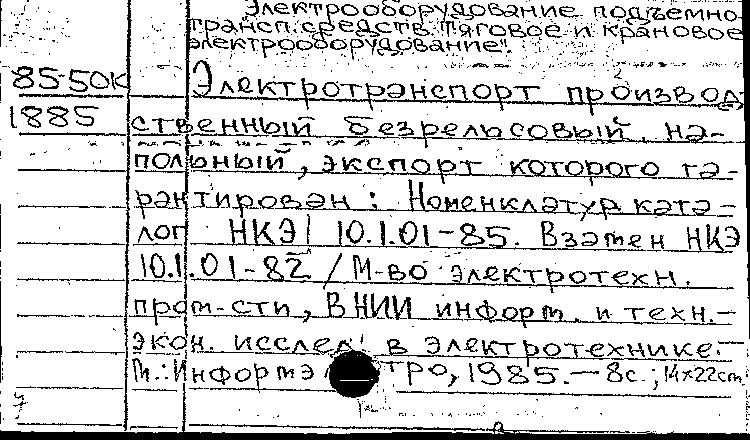 Электрооборудование подземно-
трансп. средств. Тяговое и крановое
электрооборудование".
85-50К Электротранспорт производ-
1885 ственный безрельсовый на-
польный, экспорт которого га-
рантирован: Номенклатур. ката-
лог НКЭ 10.1.01-85. Взамен НКЭ
10.1.01-82 / М-во электротехн.
пром-сти, ВНИИ информ. и техн.-
экон. исслед. в электротехнике.-
М.: Информэ тро, 1985.- 8с.; 14x22см